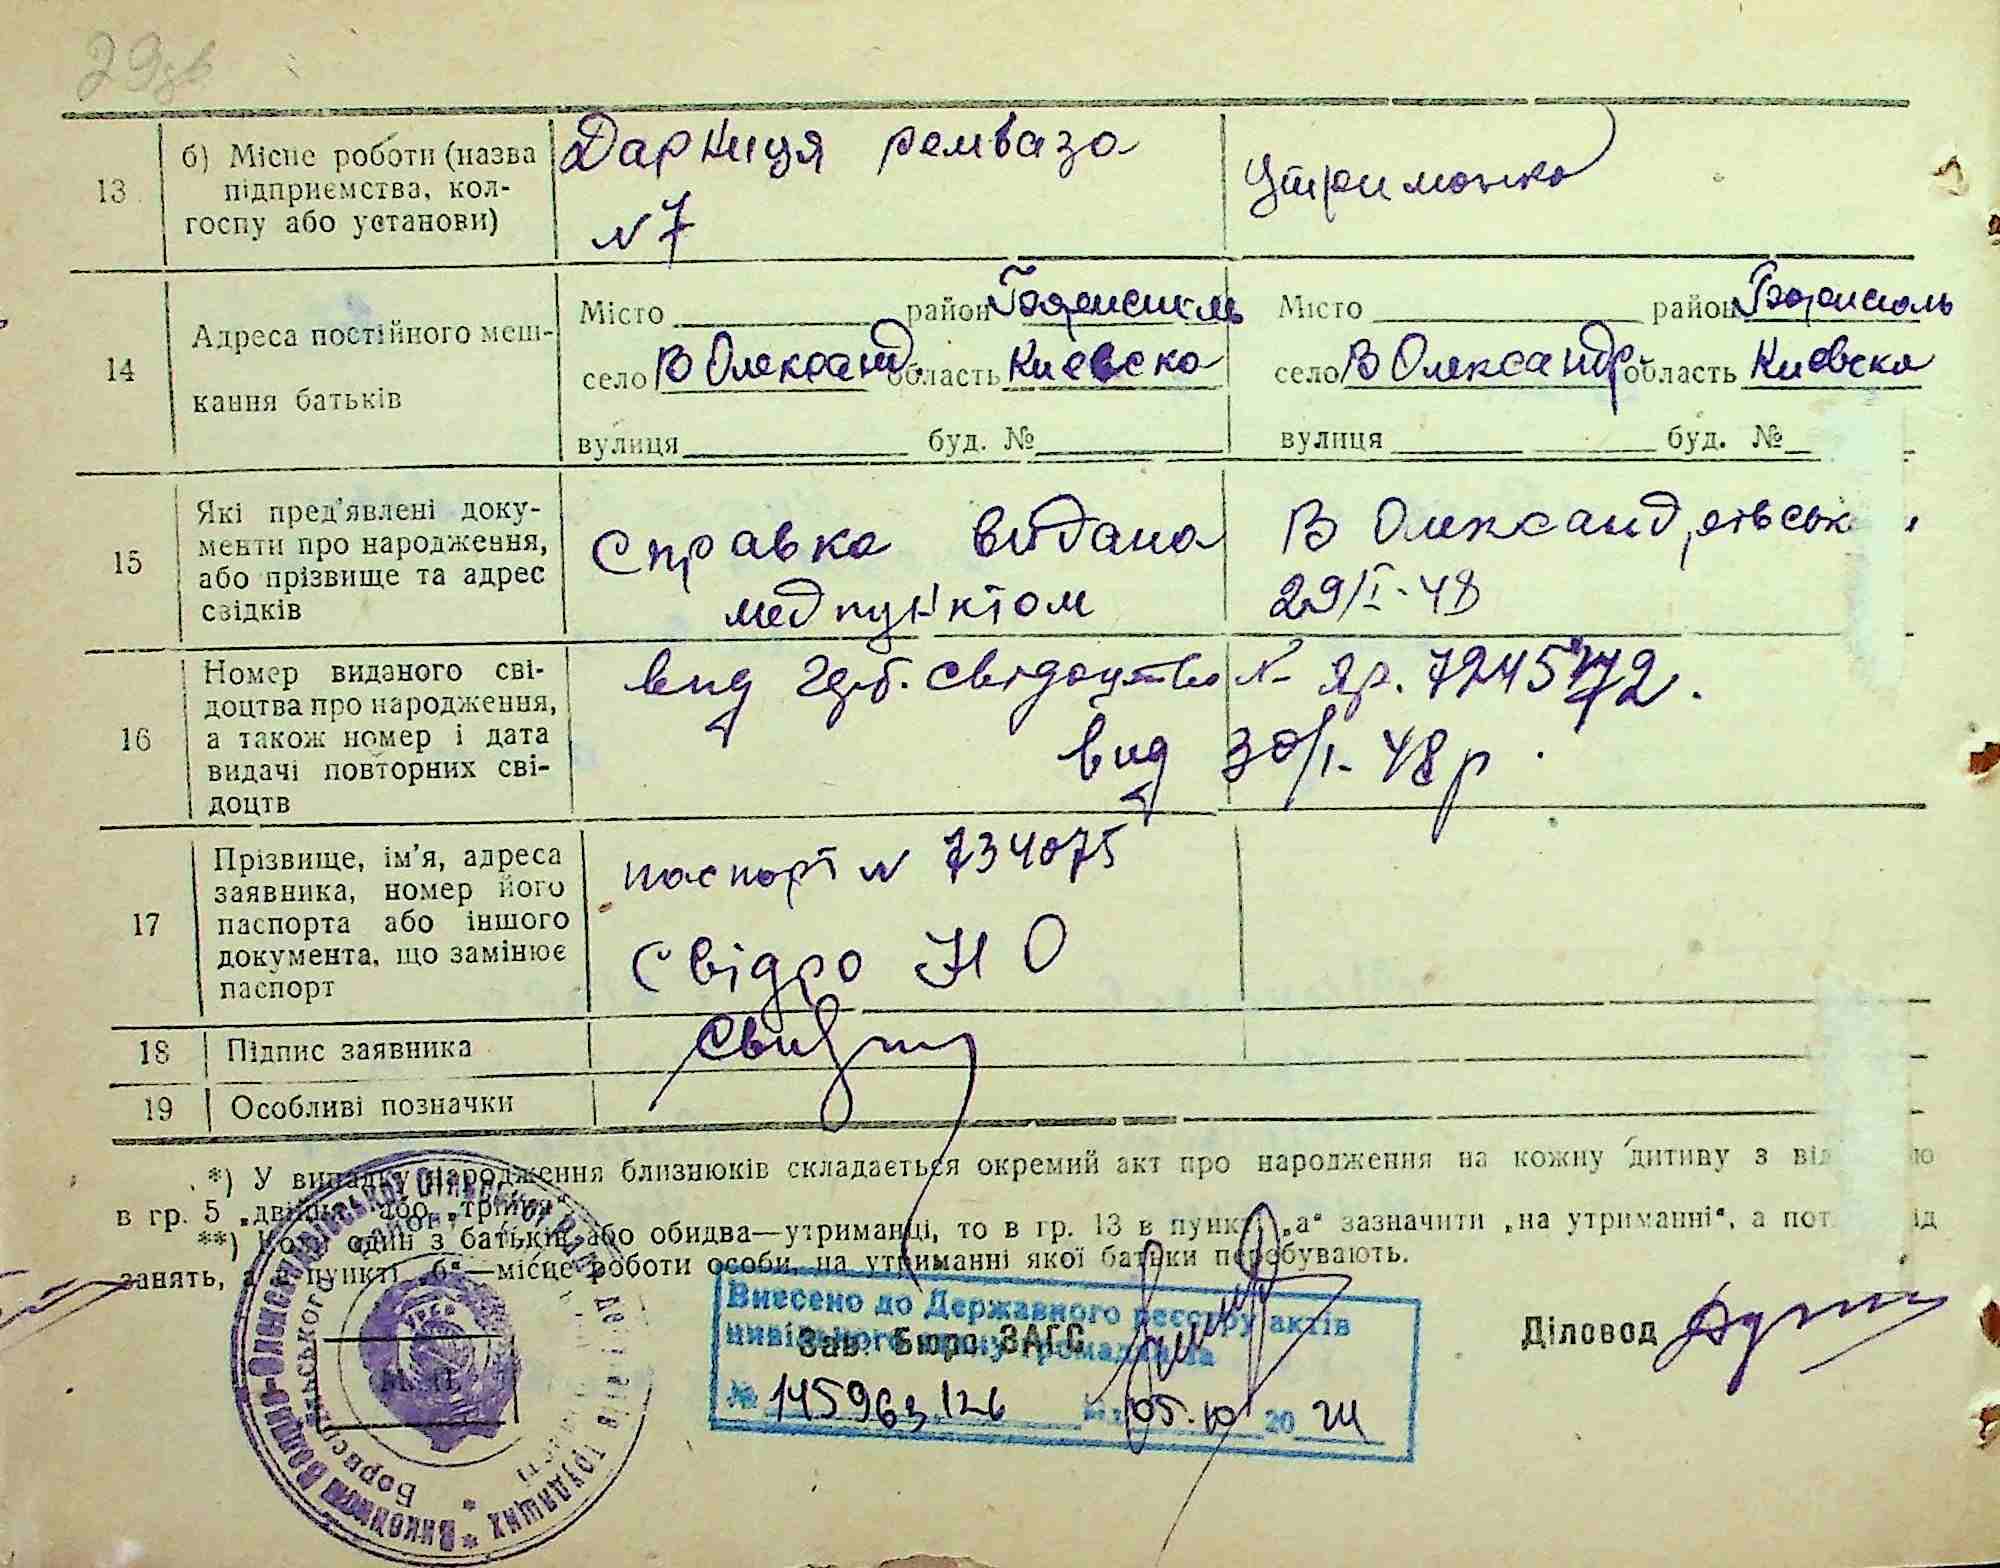 29зв
13
б) Місце роботи (назва
підприємства, кол-
госпу або установи)
Дарниця ремваза
N 7
Утриманка
14
Адреса постійного меш-
кання батьків
Місто район Бориспіль
село В Олександ. область Києвска
вулиця буд. №
Місто район Бориспіль
село В Олександр область Києвска
вулиця буд. №
15
Які пред'явлені доку-
менти про народження,
або прізвище та адрес
свідків
Справка видана В Олександрівськ
медпунктом 29/I-48
16
Номер виданого сві-
доцтва про народження,
а також номер і дата
видачі повторних сві-
доцтв
вид свідоцтво N
вид 30/I-48 р.
17
Прізвище, ім'я, адреса
заявника, номер його
паспорта або іншого
документа, що замінює
паспорт
паспорт N 734075
Свідро Н О
18
Підпис заявника
19
Особливі позначки
*) У випадку народження близнюків складається окремий акт про народження на кожну дитину з від
в гр. 5 „двійня" або „трійня"
**) Коли один з батьків або обидва—утриманці, то в гр. 13 в пункті „а" зазначити „на утриманні", а пот
занять, а в пункті „б"—місце роботи особи, на утриманні якої батьки перебувають.
Внесено до Державного реєстру актів
цивільного стану громадян за
Зав. Бюро ЗАГС
№ 145963126 від 05.10 2024
Діловод
Виконком Волицо-Олександрівської Сільської Ради депутатів трудящих
Бориспільського району
УРСР
М.П.